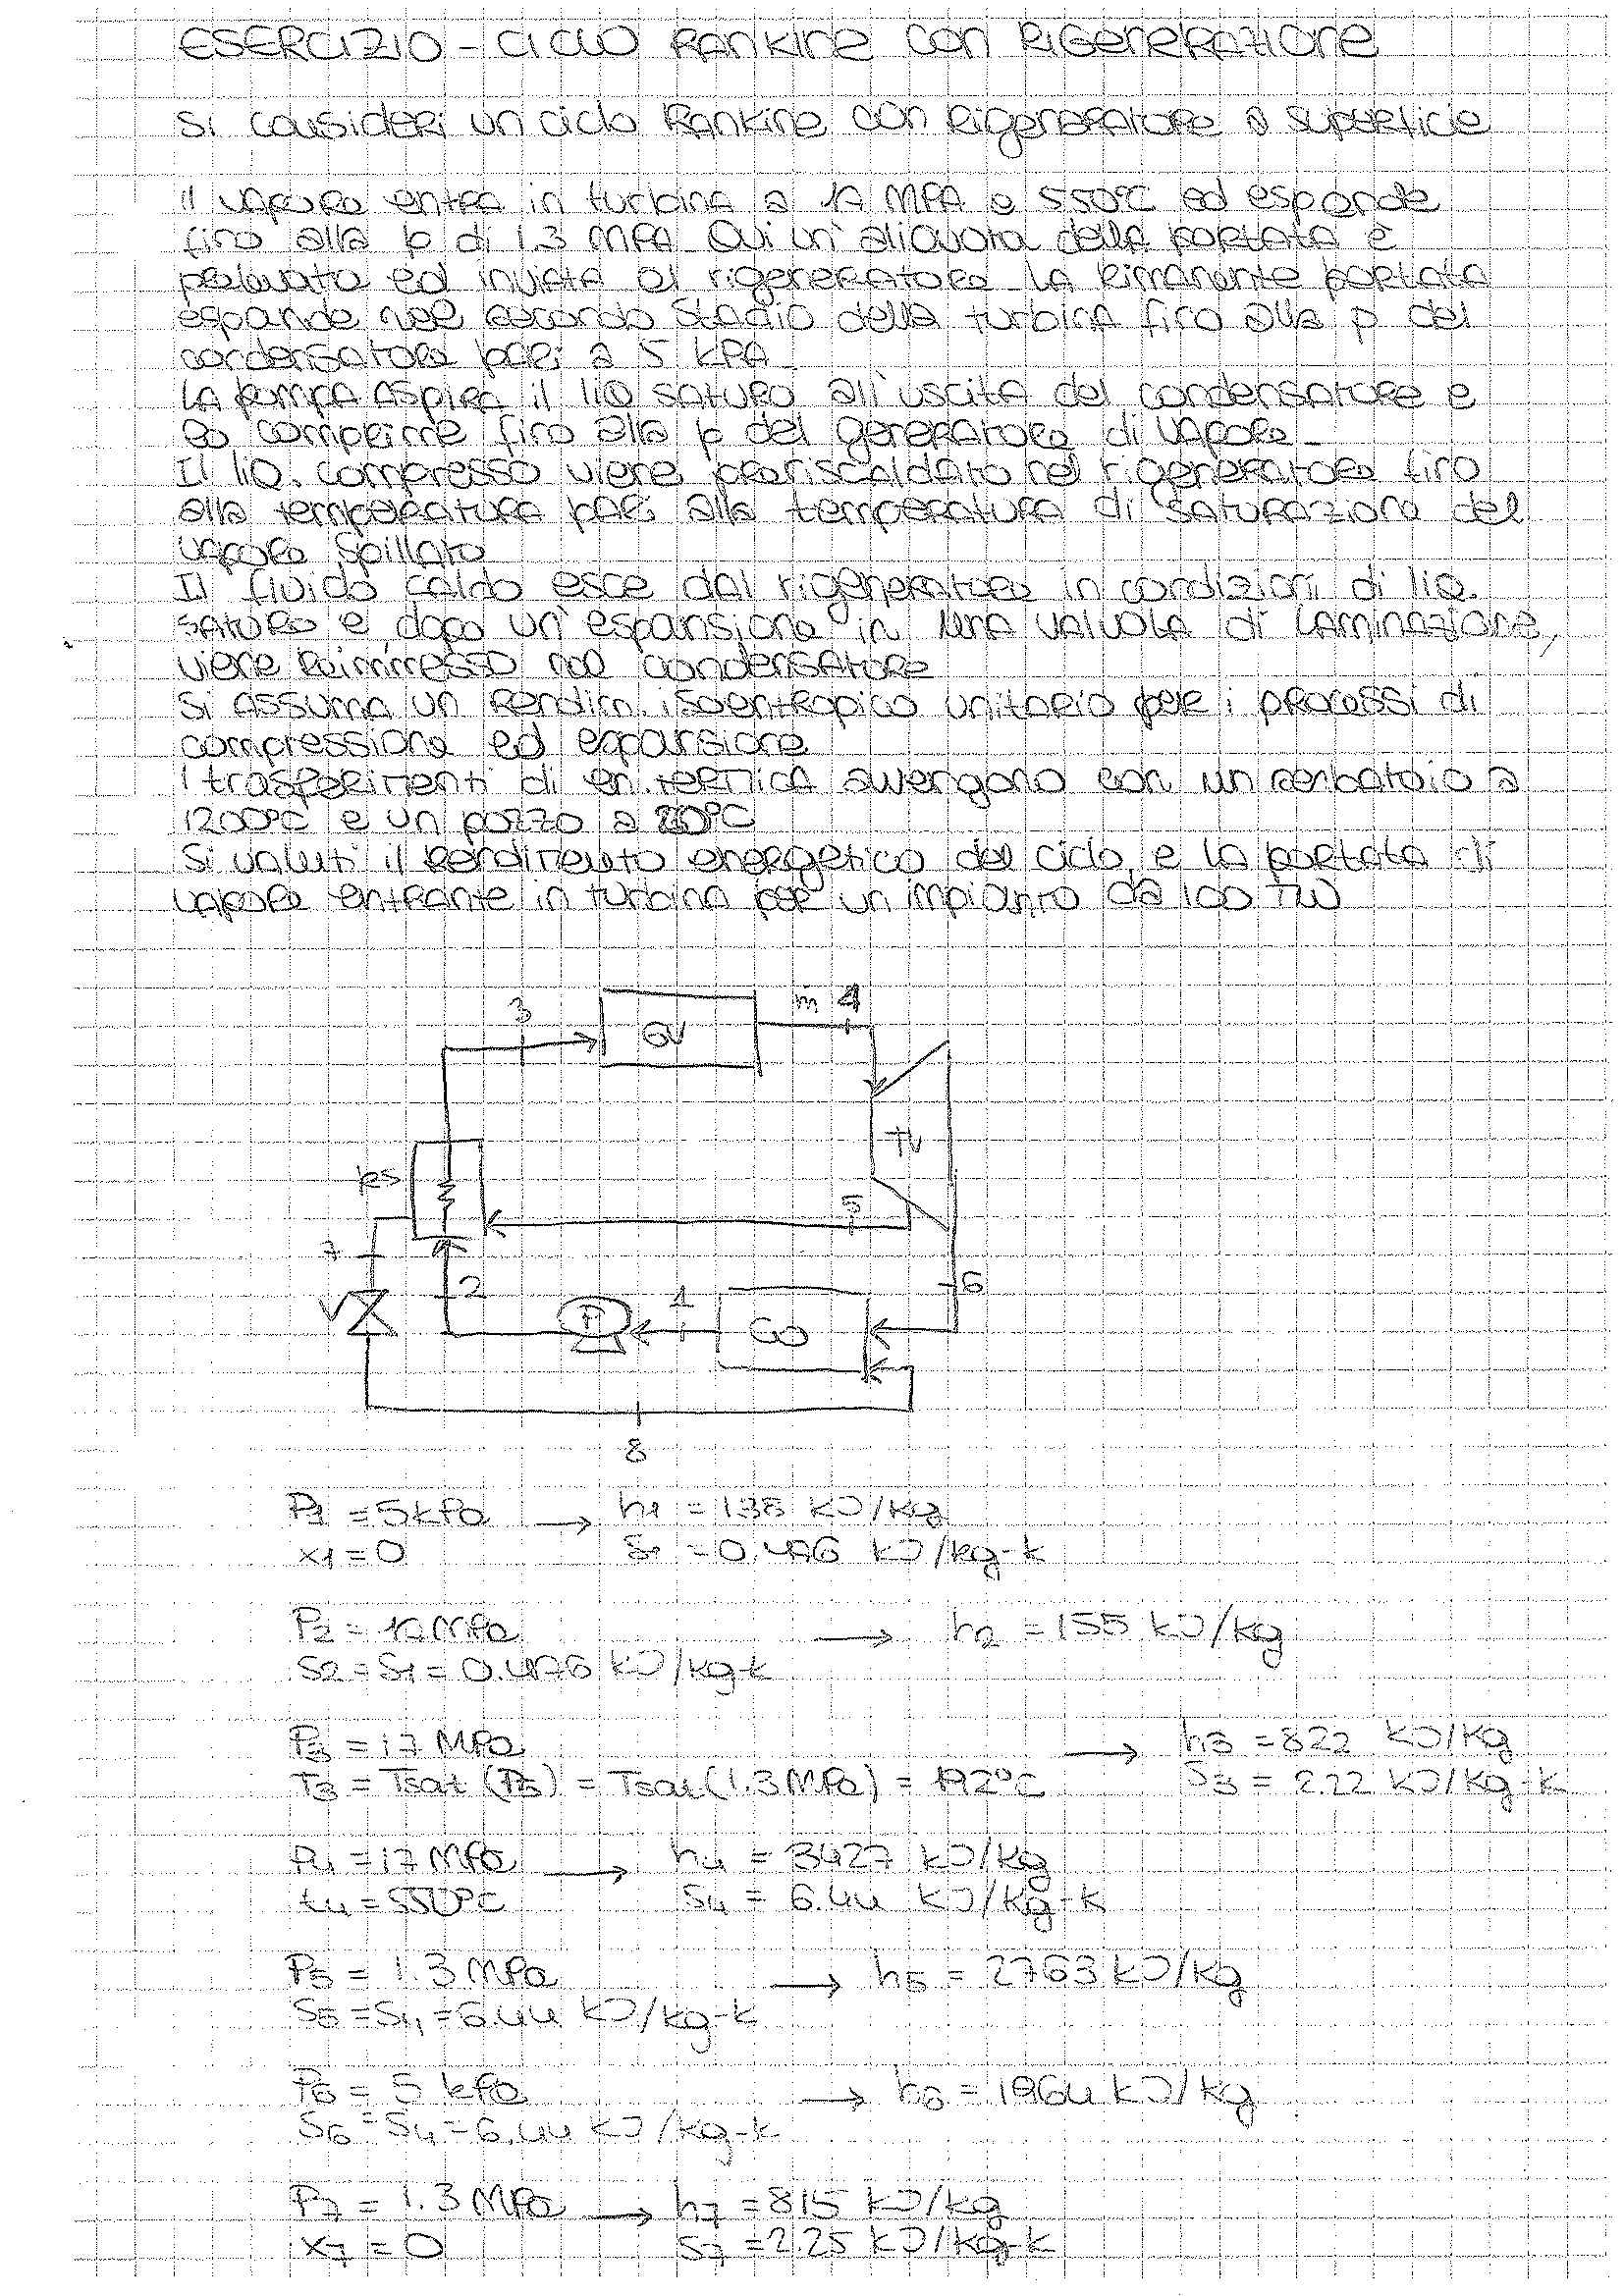 ESERCIZIO - CICLO RANKINE CON RIGENERAZIONE
Si consideri un ciclo Rankine con rigeneratore a superficie
Il vapore entra in turbina a 17 MPA e 550°C ed espande
fino alla p di 1.3 MPA Qui un'aliquota della portata è
prelevata ed inviata al rigeneratore La rimanente portata
espande nel secondo stadio della turbina fino alla p del
condensatore pari a 5 kPA
La pompa aspira il liq saturo all'uscita del condensatore e
lo comprime fino alla p del generatore di vapore
Il liq. compresso viene preriscaldato nel rigeneratore fino
alla temperatura pari alla temperatura di saturazione del
vapore spillato
Il fluido caldo esce dal rigeneratore in condizioni di liq.
saturo e, dopo un'espansione in una valvola di laminazione,
viene reimmesso nel condensatore
Si assuma un rendim. isoentropico unitario per i processi di
compressione ed espansione
I trasferimenti di en. termica avvengono con un serbatoio a
1200°C e un pozzo a 20°C
Si valuti il rendimento energetico del ciclo e la portata di
vapore entrante in turbina per un impianto da 100 MW
3 GV m 4
TV
RS
5
7
2 P 1 CO 6
V
8
P1 = 5 kPa → h1 = 138 kJ/kg
x1 = 0 s1 = 0.476 kJ/kg-k
P2 = 17 MPa → h2 = 155 kJ/kg
S2 = S1 = 0.476 kJ/kg-k
P3 = 17 MPa → h3 = 822 kJ/kg
T3 = Tsat (P5) = Tsat (1.3 MPa) = 192°C S3 = 2.22 kJ/kg-k
P4 = 17 MPa → h4 = 3427 kJ/kg
t4 = 550°C S4 = 6.44 kJ/kg-k
P5 = 1.3 MPa → h5 = 2763 kJ/kg
S5 = S4 = 6.44 kJ/kg-k
P6 = 5 kPa → h6 = 1964 kJ/kg
S6 = S4 = 6.44 kJ/kg-k
P7 = 1.3 MPa → h7 = 815 kJ/kg
x7 = 0 S7 = 2.25 kJ/kg-k